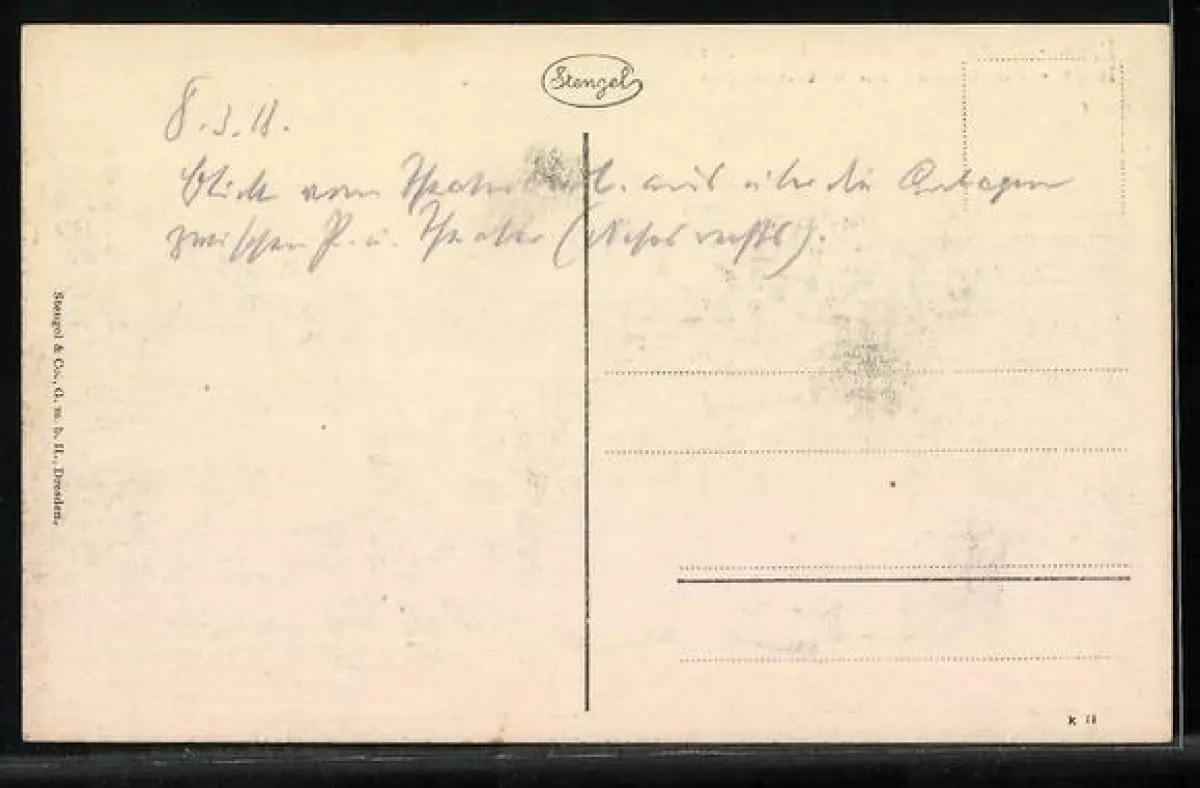 Stengel
8.3.18.
Blick vom aus über die Anlagen
zwischen P. u. Theater ( rechts).
Stengel & Co., G. m. b. H., Dresden.